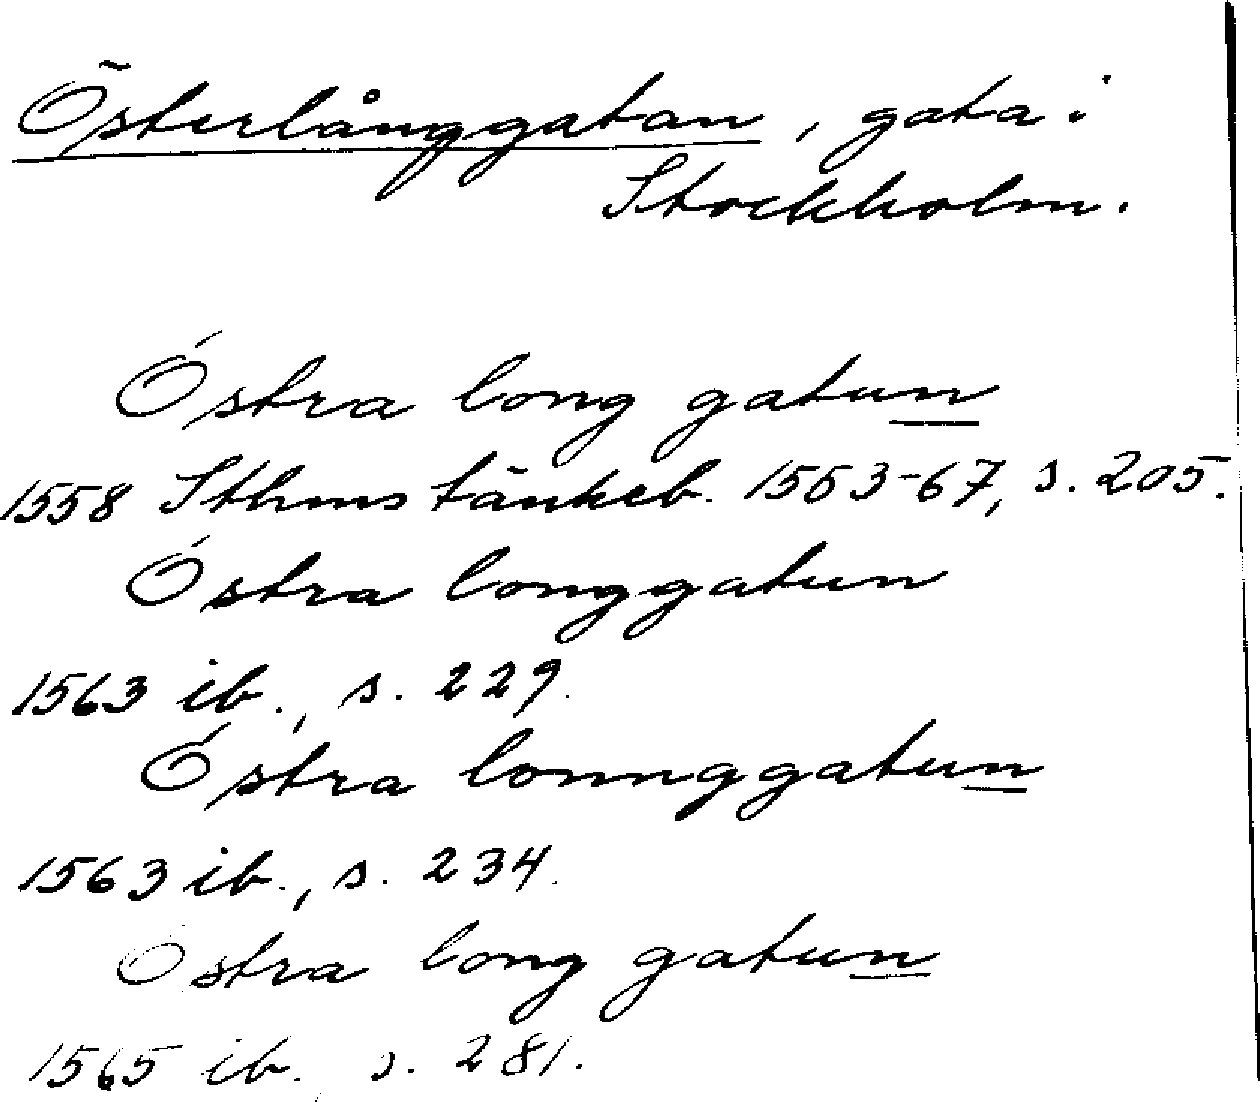 Österlånggatan, gata i
Stockholm.
Óstra long gatun
1558 Sthms tänkeb. 1553-67, s. 205.
Óstra longgatun
1563 ib., s. 229.
Óstra lonnggatun
1563 ib., s. 234.
Óstra long gatun
1565 ib., s. 281.